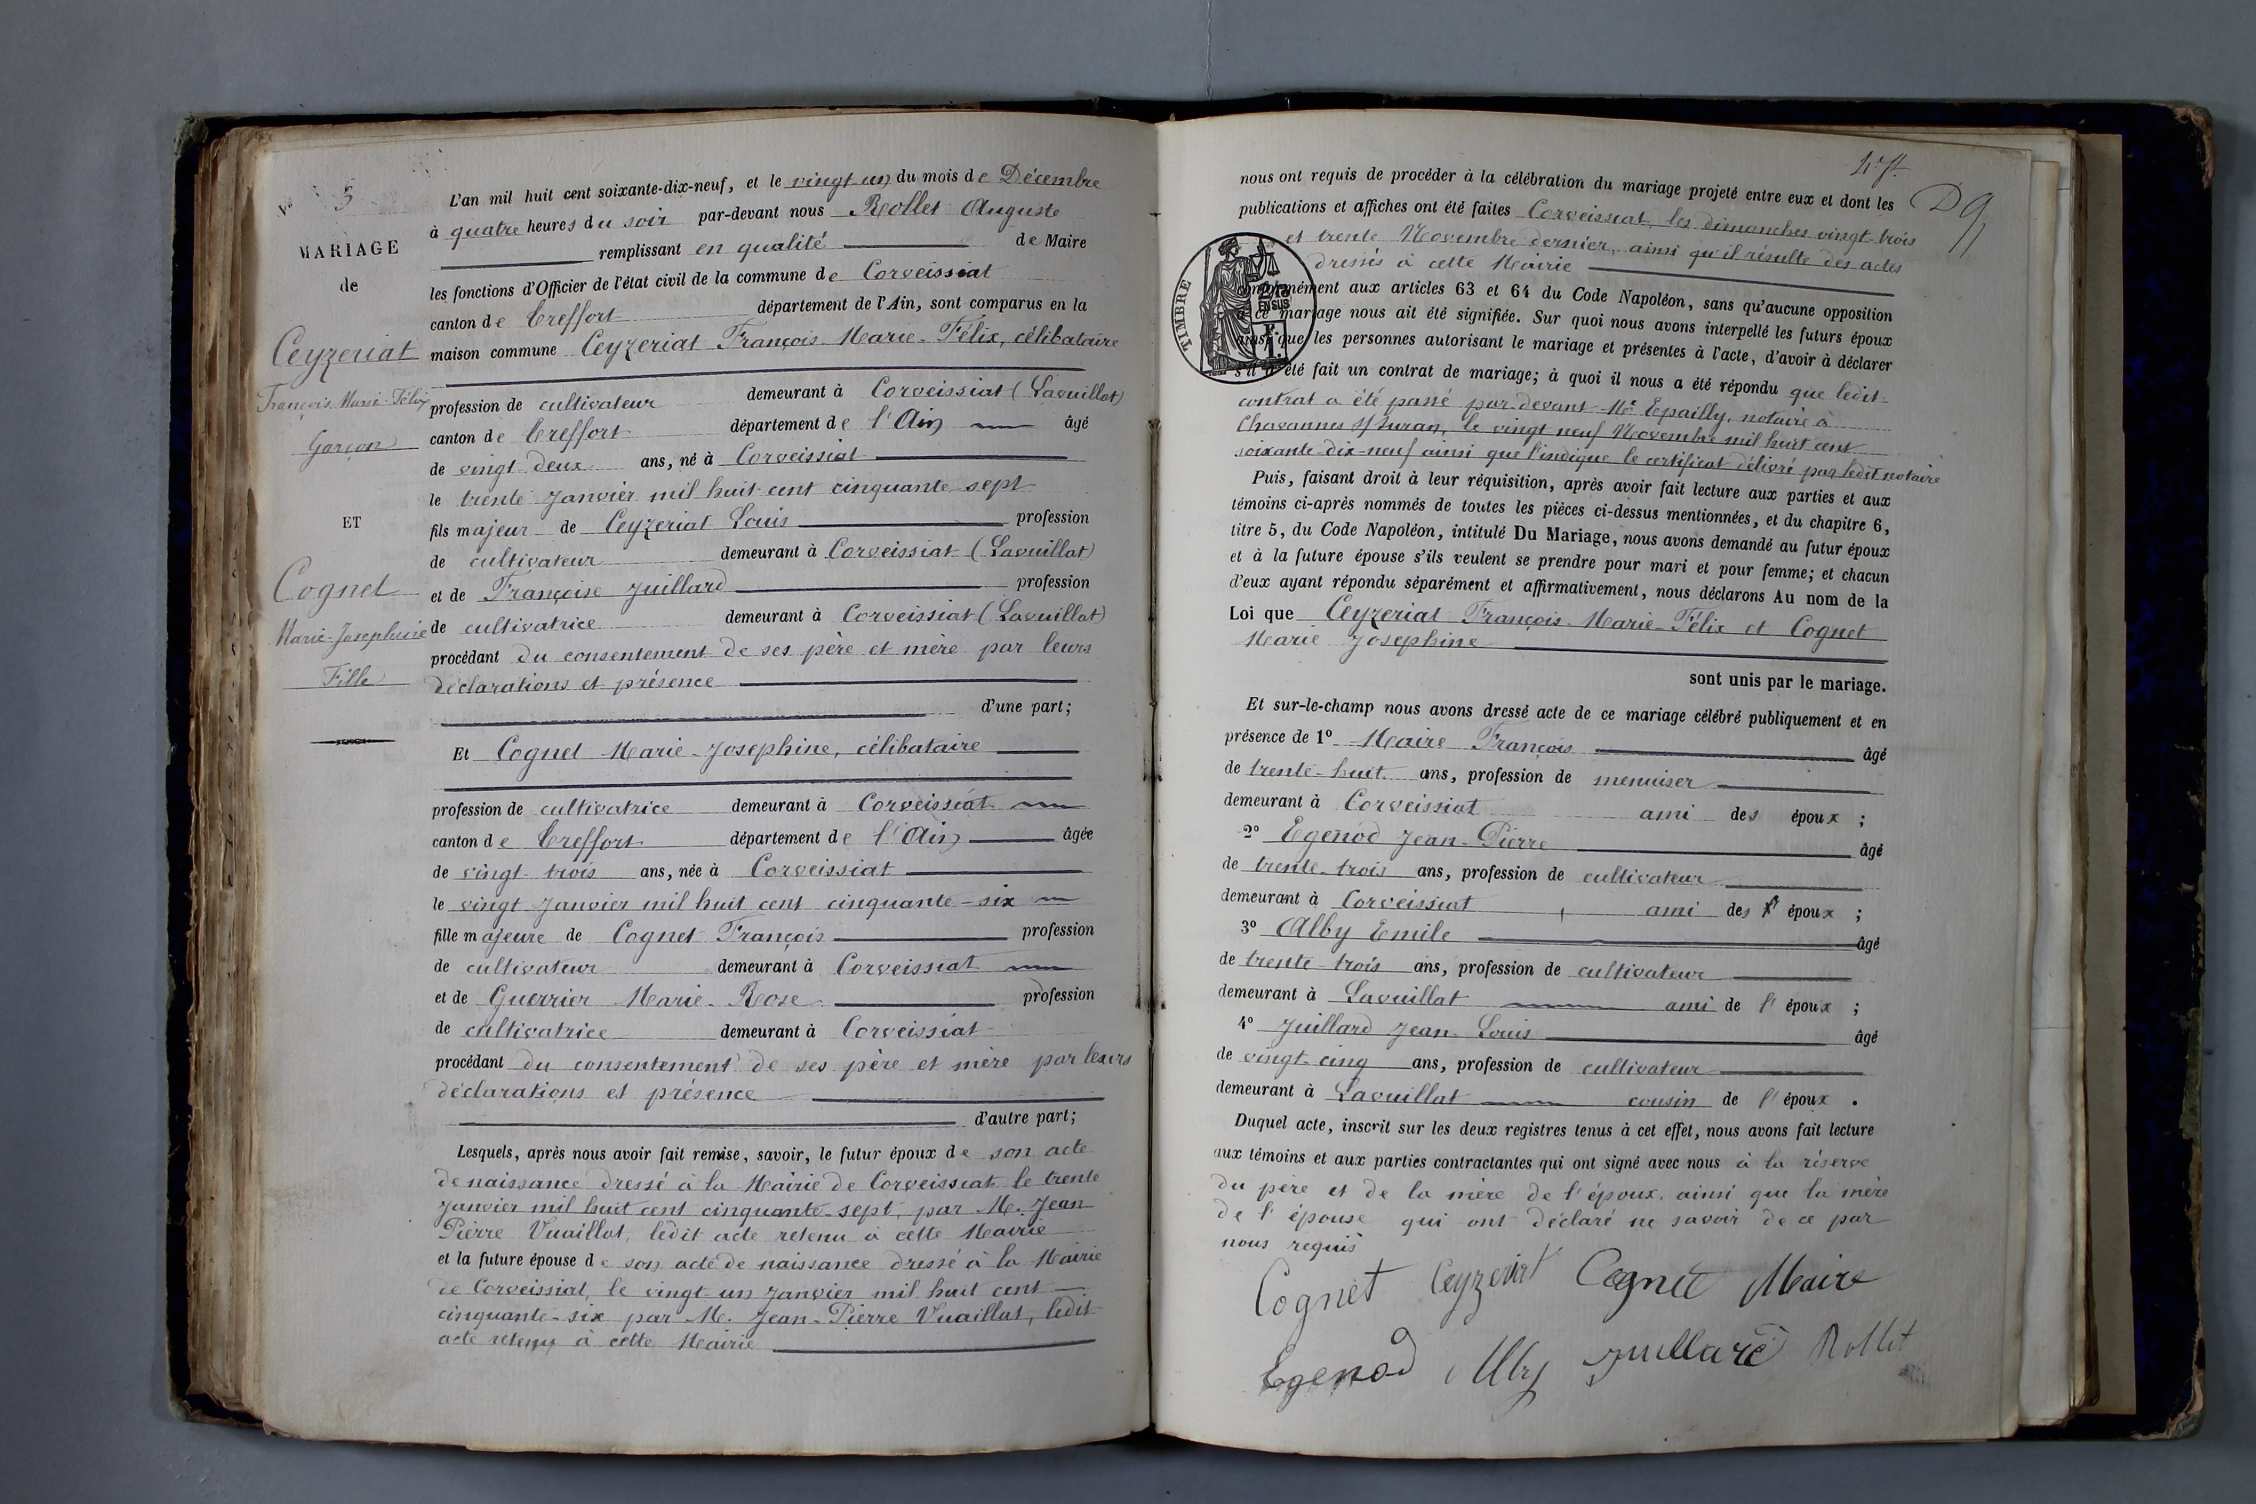 N° 5
MARIAGE
de
Ceyzeriat
François Marie-Félix
Garçon
ET
Cognet
Marie-Josephine
Fille
L'an mil huit cent soixante-dix-neuf, et le vingt un du mois de Décembre
à quatre heures du soir par-devant nous Rollet Auguste
remplissant en qualité de Maire
les fonctions d'Officier de l'état civil de la commune de Corveissiat
canton de Treffort département de l'Ain, sont comparus en la
maison commune Ceyzeriat François-Marie-Félix, célibataire
profession de cultivateur demeurant à Corveissiat (Lavuillat)
canton de Treffort département de l'Ain âgé
de vingt-deux ans, né à Corveissiat
le trente Janvier mil huit-cent cinquante sept
fils majeur de Ceyzeriat Louis profession
de cultivateur demeurant à Corveissiat (Lavuillat)
et de Françoise Juillard profession
de cultivatrice demeurant à Corveissiat (Lavuillat)
procédant du consentement de ses père et mère par leurs
déclarations et présence
d'une part;
Et Cognet Marie-Josephine, célibataire
profession de cultivatrice demeurant à Corveissiat
canton de Treffort département de l'Ain âgée
de vingt-trois ans, née à Corveissiat
le vingt Janvier mil huit cent cinquante-six
fille majeure de Cognet François profession
de cultivateur demeurant à Corveissiat
et de Guerrier Marie-Rose profession
de cultivatrice demeurant à Corveissiat
procédant du consentement de ses père et mère par leurs
déclarations et présence
d'autre part;
Lesquels, après nous avoir fait remise, savoir, le futur époux de son acte
de naissance dressé à la Mairie de Corveissiat le trente
Janvier mil huit cent cinquante-sept, par M. Jean
Pierre Vuaillat, ledit acte retenu à cette Mairie
et la future épouse de son acte de naissance dressé à la Mairie
de Corveissiat, le vingt-un Janvier mil huit cent
cinquante-six par M. Jean-Pierre Vuaillat, ledit
acte retenu à cette Mairie
D9
nous ont requis de procéder à la célébration du mariage projeté entre eux et dont les
publications et affiches ont été faites Corveissiat, les dimanches vingt-trois
et trente Novembre dernier, ainsi qu'il résulte des actes
dressés à cette Mairie
TIMBRE
2/10
EN SUS
1 F.
conformément aux articles 63 et 64 du Code Napoléon, sans qu'aucune opposition
à ce mariage nous ait été signifiée. Sur quoi nous avons interpellé les futurs époux
ainsi que les personnes autorisant le mariage et présentes à l'acte, d'avoir à déclarer
s'il a été fait un contrat de mariage; à quoi il nous a été répondu que ledit
contrat a été passé par-devant Me Epailly, notaire à
Chavannes s/ Suran, le vingt neuf Novembre mil huit cent
soixante-dix-neuf ainsi que l'indique le certificat délivré par ledit notaire
Puis, faisant droit à leur réquisition, après avoir fait lecture aux parties et aux
témoins ci-après nommés de toutes les pièces ci-dessus mentionnées, et du chapitre 6,
titre 5, du Code Napoléon, intitulé Du Mariage, nous avons demandé au futur époux
et à la future épouse s'ils veulent se prendre pour mari et pour femme; et chacun
d'eux ayant répondu séparément et affirmativement, nous déclarons Au nom de la
Loi que Ceyzeriat François-Marie-Félix et Cognet
Marie Josephine
sont unis par le mariage.
Et sur-le-champ nous avons dressé acte de ce mariage célébré publiquement et en
présence de 1º Maire François âgé
de trente-huit ans, profession de menuiser
demeurant à Corveissiat ami des époux ;
2º Egenod Jean-Pierre âgé
de trente-trois ans, profession de cultivateur
demeurant à Corveissiat ami des époux ;
3º Alby Emile âgé
de trente-trois ans, profession de cultivateur
demeurant à Lavuillat ami de l'époux ;
4º Juillard Jean-Louis âgé
de vingt-cinq ans, profession de cultivateur
demeurant à Lavuillat cousin de l'époux .
Duquel acte, inscrit sur les deux registres tenus à cet effet, nous avons fait lecture
aux témoins et aux parties contractantes qui ont signé avec nous à la réserve
du père et de la mère de l'époux ainsi que la mère
de l'épouse qui ont déclaré ne savoir de ce par
nous requis
Cognet Ceyzeriat Cognet Maire
Egenod Alby Juillard Rollet